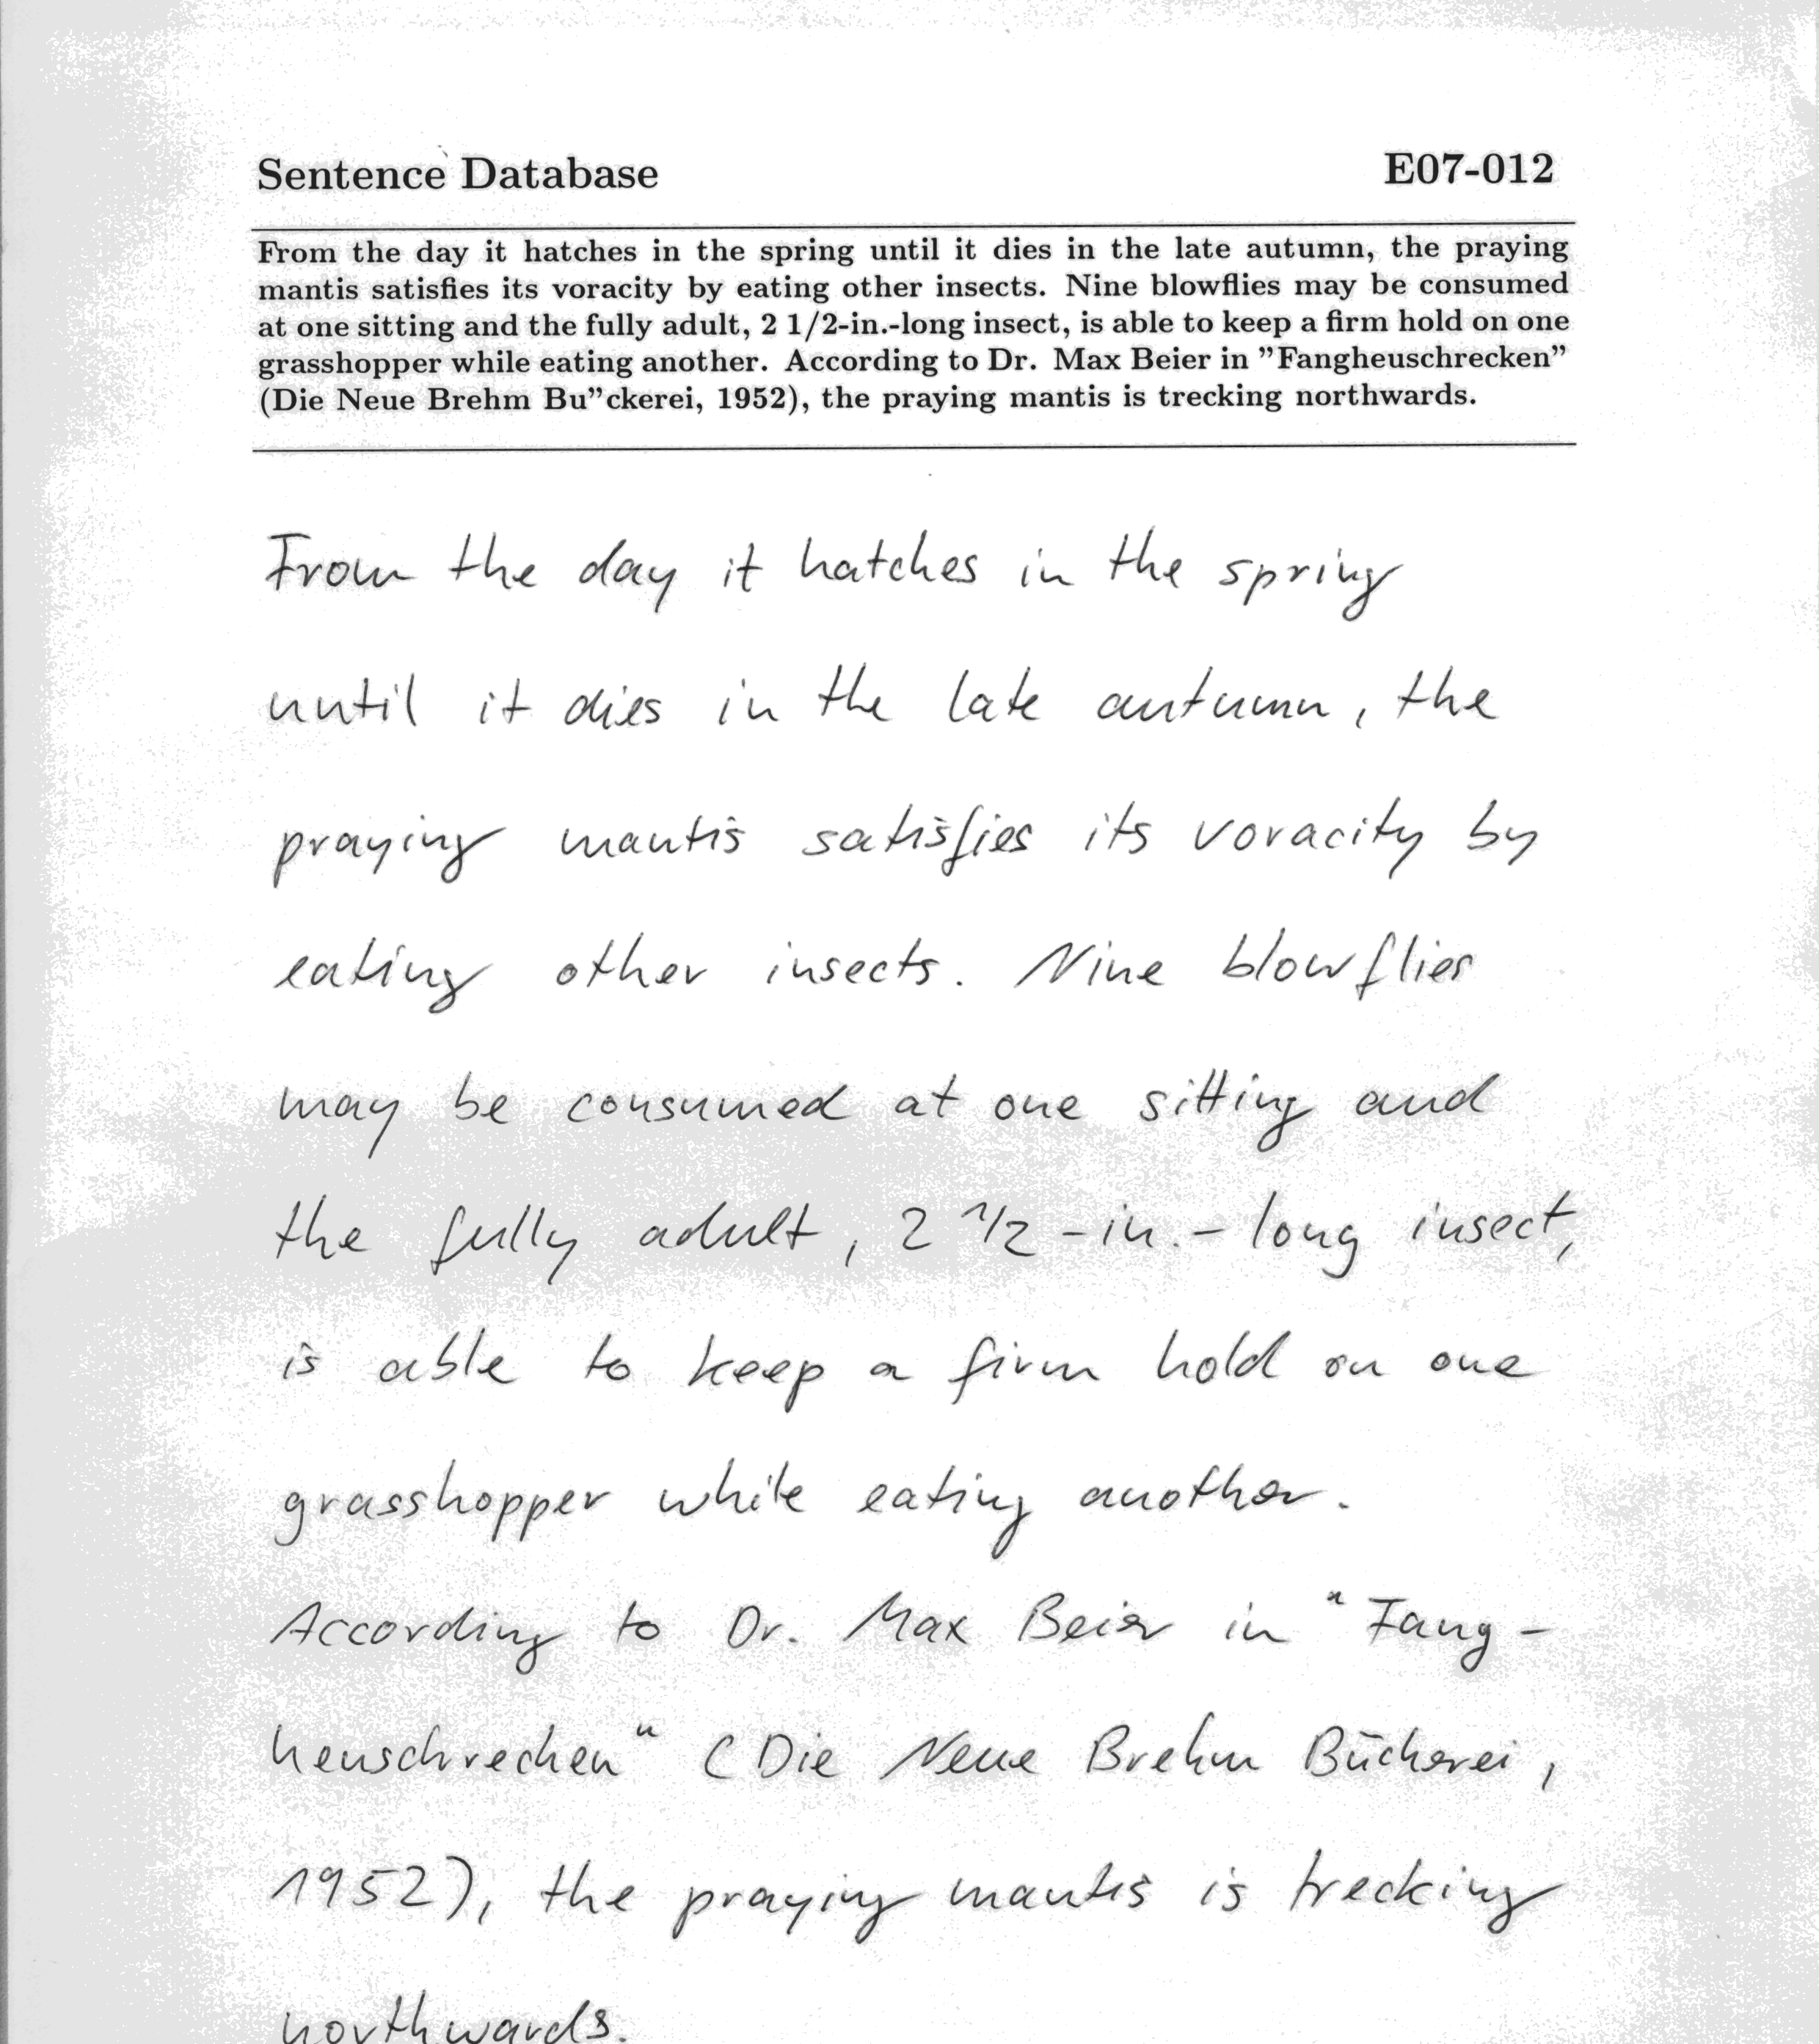 Sentence Database E07-012
From the day it hatches in the spring until it dies in the late autumn, the praying
mantis satisfies its voracity by eating other insects. Nine blowflies may be consumed
at one sitting and the fully adult, 2 1/2-in.-long insect, is able to keep a firm hold on one
grasshopper while eating another. According to Dr. Max Beier in ”Fangheuschrecken”
(Die Neue Brehm Bu”ckerei, 1952), the praying mantis is trecking northwards.
From the day it hatches in the spring
until it dies in the late autumn, the
praying mantis satisfies its voracity by
eating other insects. Nine blowflies
may be consumed at one sitting and
the fully adult, 2 1/2-in.-long insect,
is able to keep a firm hold on one
grasshopper while eating another.
According to Dr. Max Beier in "Fang-
heuschrecken" (Die Neue Brehm Bücherei,
1952), the praying mantis is trecking
northwards.